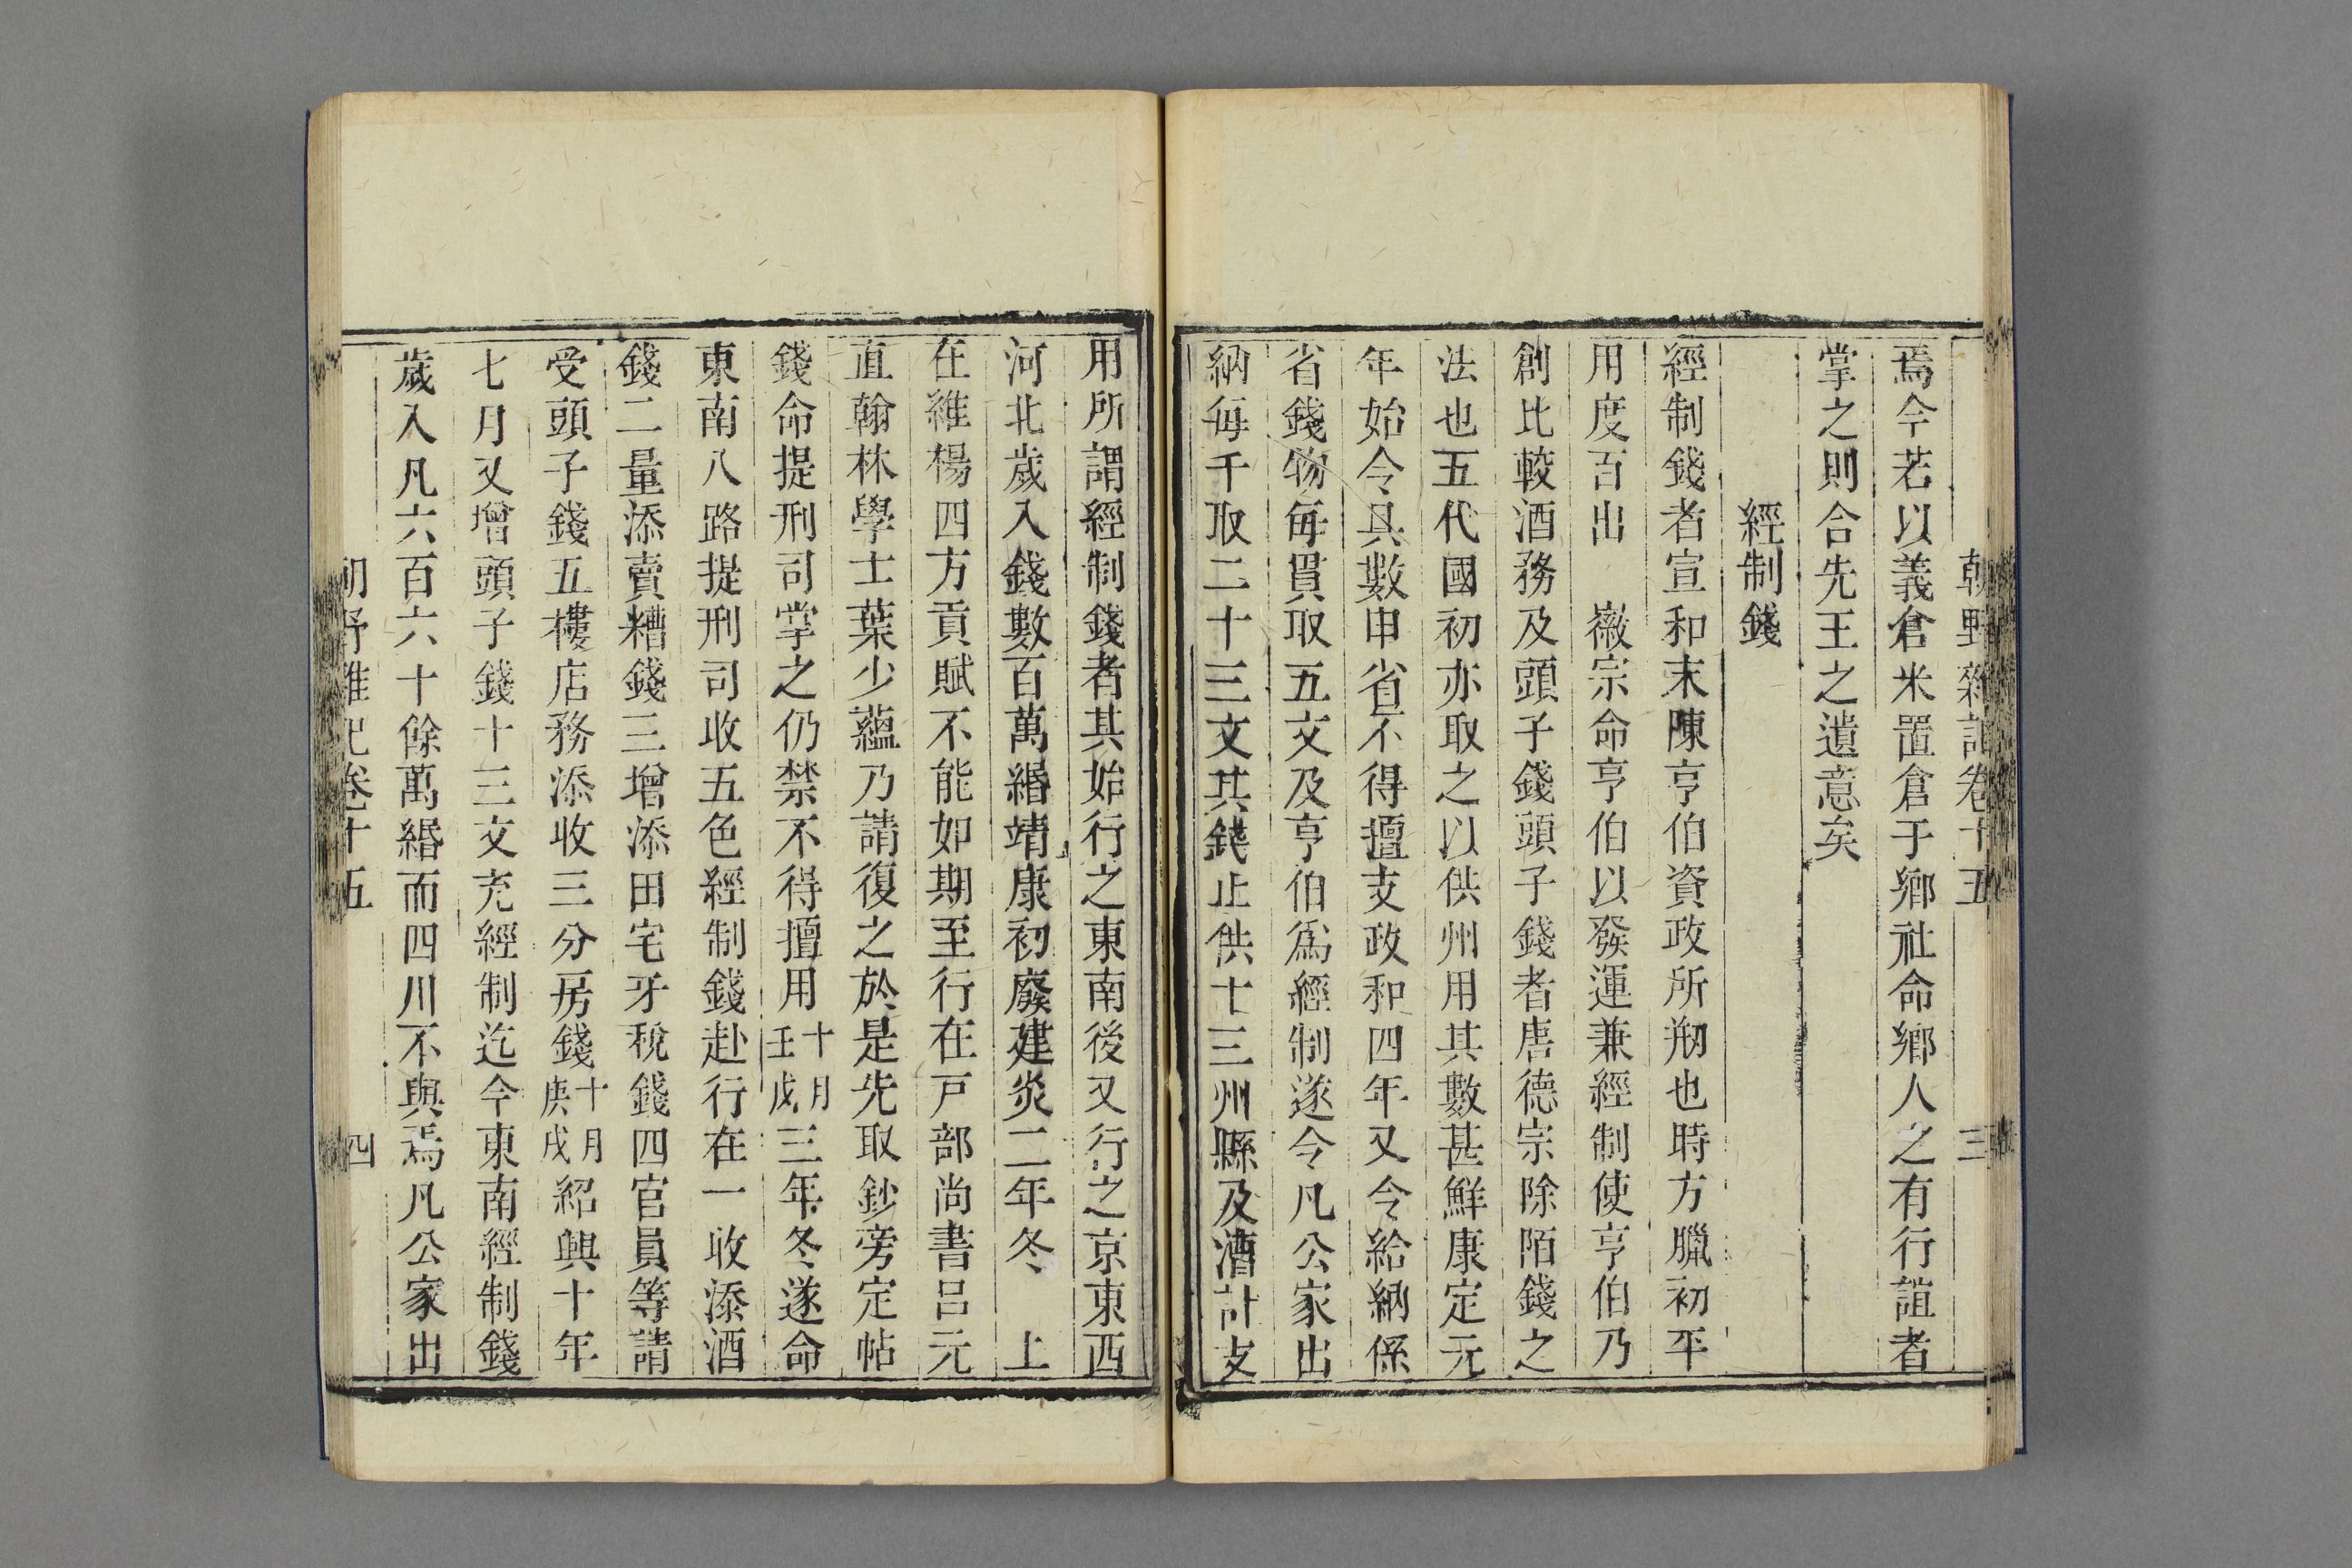 朝野雜記卷十五 三
焉今若以義倉米置倉于鄉社命鄉人之有行誼者
掌之則合先王之遺意矣
經制錢
經制錢者宣和末陳亨伯資政所剏也時方臘初平
用度百出 徽宗命亨伯以發運兼經制使亨伯乃
創比較酒務及頭子錢頭子錢者唐德宗除陌錢之
法也五代國初亦取之以供州用其數甚鮮康定元
年始令具數申省不得擅支政和四年又令給納係
省錢物每貫取五文及亨伯爲經制遂令凡公家出
納每千取二十三文其錢止供十三州縣及漕計支
用所謂經制錢者其始行之東南後又行之京東西
河北歲入錢數百萬緡靖康初廢建炎二年冬 上
在維楊四方貢賦不能如期至行在戸部尚書呂元
直翰林學士葉少蘊乃請復之於是先取鈔旁定帖
錢命提刑司掌之仍禁不得擅用十月壬戌三年冬遂命
東南八路提刑司收五色經制錢赴行在一收添酒
錢二量添賣糟錢三增添田宅牙稅錢四官員等請
受頭子錢五樓店務添收三分房錢十月庚戌紹興十年
七月又增頭子錢十三文充經制迄今東南經制錢
歲入凡六百六十餘萬緡而四川不與焉凡公家出
朝野雜記卷十五 四